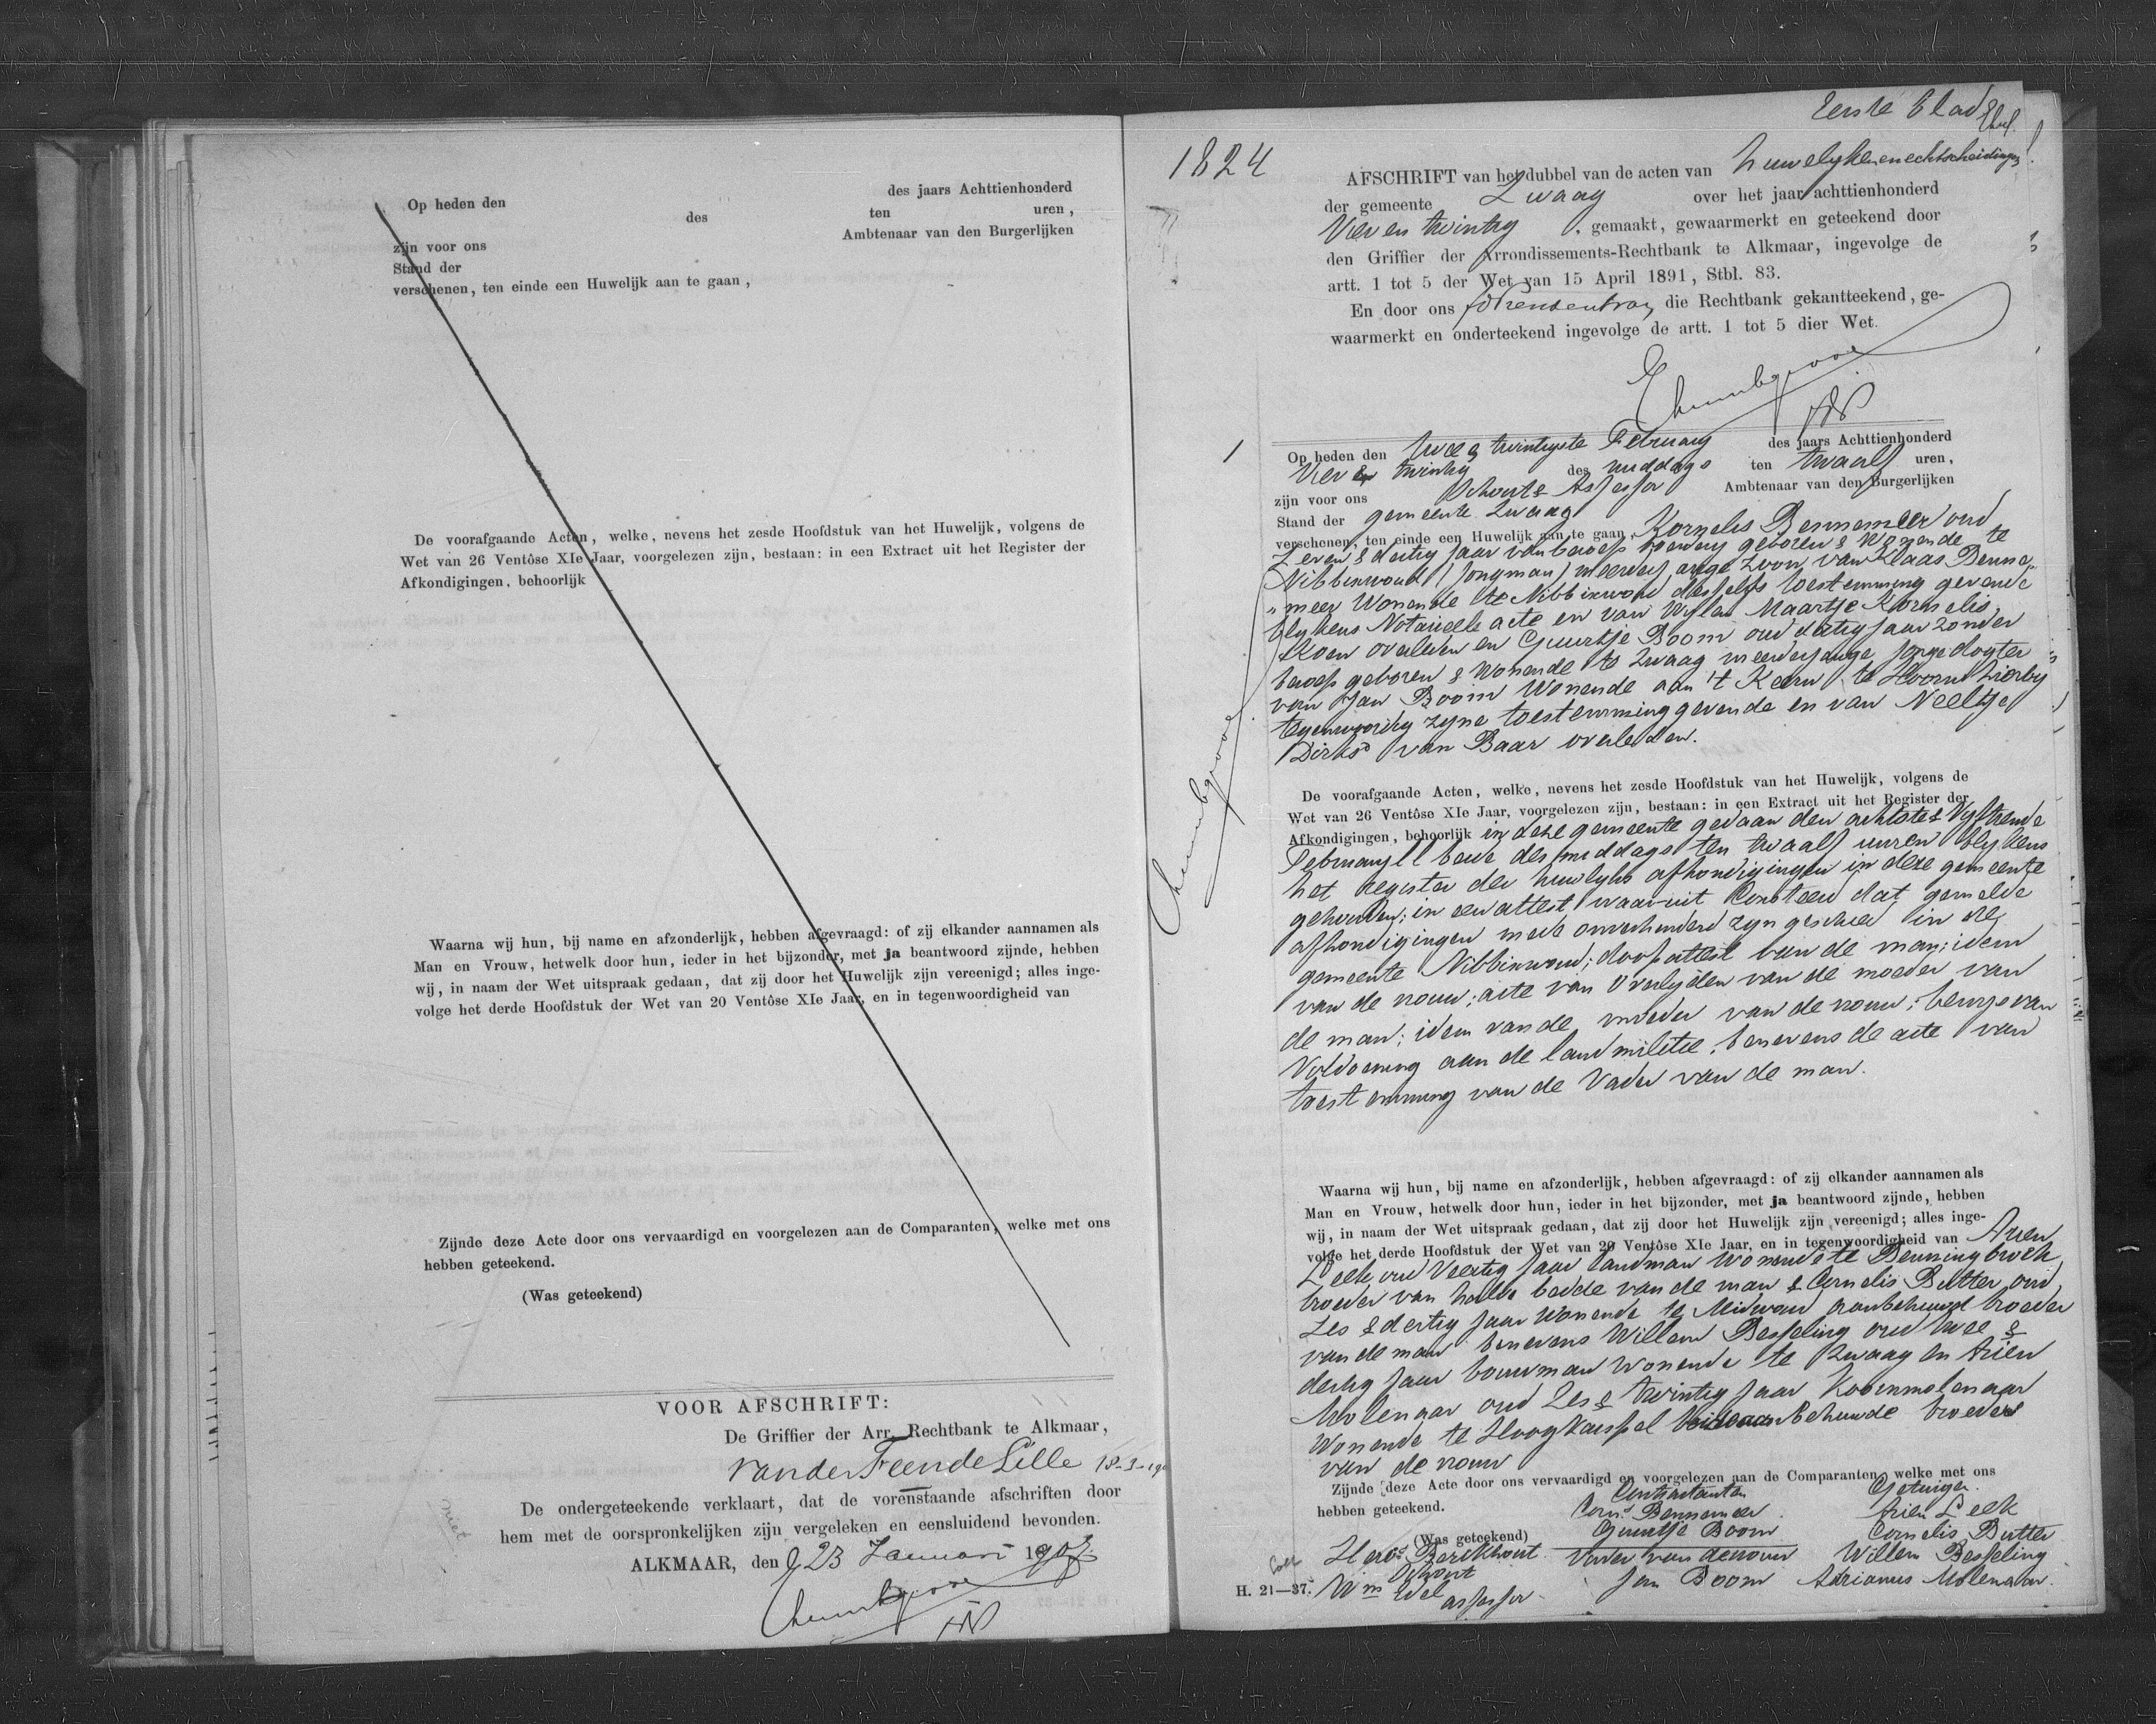 Op heden den des jaars Achttienhonderd
des ten uren,
zijn voor ons Ambtenaar van den Burgerlijken
Stand der
verschenen, ten einde een Huwelijk aan te gaan,
De voorafgaande Acten, welke, nevens het zesde Hoofdstuk van het Huwelijk, volgens de
Wet van 26 Ventôse XIe Jaar, voorgelezen zijn, bestaan: in een Extract uit het Register der
Afkondigingen, behoorlijk
Waarna wij hun, bij name en afzonderlijk, hebben afgevraagd: of zij elkander aannamen als
Man en Vrouw, hetwelk door hun, ieder in het bijzonder, met ja beantwoord zijnde, hebben
wij, in naam der Wet uitspraak gedaan, dat zij door het Huwelijk zijn vereenigd; alles inge-
volge het derde Hoofdstuk der Wet van 20 Ventôse XIe Jaar, en in tegenwoordigheid van
Zijnde deze Acte door ons vervaardigd en voorgelezen aan de Comparanten, welke met ons
hebben geteekend.
(Was geteekend)
VOOR AFSCHRIFT:
De Griffier der Arr. Rechtbank te Alkmaar,
van der Feen de Lille
De ondergeteekende verklaart, dat de vorenstaande afschriften door
hem met de oorspronkelijken zijn vergeleken en eensluidend bevonden.
niet
ALKMAAR, den 23 Januari 1903.
Eerste blad
1824
AFSCHRIFT van het dubbel van de acten van huwelyken en echtscheidingen
der gemeente Zwaag over het jaar achttienhonderd
Vier en twintig . gemaakt, gewaarmerkt en geteekend door
den Griffier der Arrondissements-Rechtbank te Alkmaar, ingevolge de
artt. 1 tot 5 der Wet van 15 April 1891, Stbl. 83.
En door ons die Rechtbank gekantteekend, ge-
waarmerkt en onderteekend ingevolge de artt. 1 tot 5 dier Wet.
1
Op heden den twee & twintigste February des jaars Achttienhonderd
Vier & twintig des middags ten twaalf uren,
zijn voor ons Schout & Assessor Ambtenaar van den Burgerlijken
Stand der gemeente Zwaag
verschenen, ten einde een Huwelijk aan te gaan, Kornelis Bennemeer oud
Zeven & dertig jaar van beroep geboren & Wonende te
Nibbixwoud (jongman) meerderjarige zoon van Klaas Benne„
„meer Wonende te Nibbixwoud desselfs toestemming gevende
blykens Notarieele acte en van Wylen Maartje Kornelis
Koen overleden en Guurtje Boom oud dertig jaar zonder
beroep geboren & Wonende te Zwaag meerderjarige jonge dogter
van Jan Boom Wonende aan 't Keern te Hoorn hierby
tegenwoordig zyne toestemming gevende en van Neeltje
Dirks van Baar overleden.
De voorafgaande Acten, welke, nevens het zesde Hoofdstuk van het Huwelijk, volgens de
Wet van 26 Ventôse XIe Jaar, voorgelezen zijn, bestaan: in een Extract uit het Register der
Afkondigingen, behoorlijk in deze gemeente gedaan den achtste & Vyftiende
February ll beide des middags ten twaalf uuren blykens
het register der huwlyks afkondigingen in deze gemeente
gehouden; in een attest waaruit Consteerd dat gemelde
afkondigingen mede onverhinderd zyn geschied in de
gemeente Nibbixwoud; doopattest van de man; idem
van de vrouw; acte van Overlyden van de moeder van
de man; idem van de moeder van de vrouw; bewys van
Voldoening aan de landmilitie; benevens de acte van
toestemming van de Vader van de man.
Waarna wij hun, bij name en afzonderlijk, hebben afgevraagd: of zij elkander aannamen als
Man en Vrouw, hetwelk door hun, ieder in het bijzonder, met ja beantwoord zijnde, hebben
wij, in naam der Wet uitspraak gedaan, dat zij door het Huwelijk zijn vereenigd; alles inge-
volge het derde Hoofdstuk der Wet van 20 Ventôse XIe Jaar, en in tegenwoordigheid van Arien
Leek oud Veertig jaar landman Wonende te Benningbroek
broeder van halve bedde van de man & Cornelis Butter oud
Zes & dertig jaar Wonende te Midwoud aanbehuwd broeder
van de man benevens Willem Besseling oud twee &
dertig jaar bouwman Wonende te Zwaag en Arien
Molenaar oud Zes & twintig jaar Koornmolenaar
Wonende te Hoogkarspel beide aanbehuwde broeders
van de vrouw
Zijnde deze Acte door ons vervaardigd en voorgelezen aan de Comparanten, welke met ons
hebben geteekend. Contractanten Getuigen.
Corn.s Bennemeer Arien Leek
(Was geteekend) Guurtje Boom Cornelis Butter
Berckhout Vader van de vrouw Willem Besseling
Schout Jan Boom Adrianus Molenaar.
H. 21—37. Wm Edel assessor